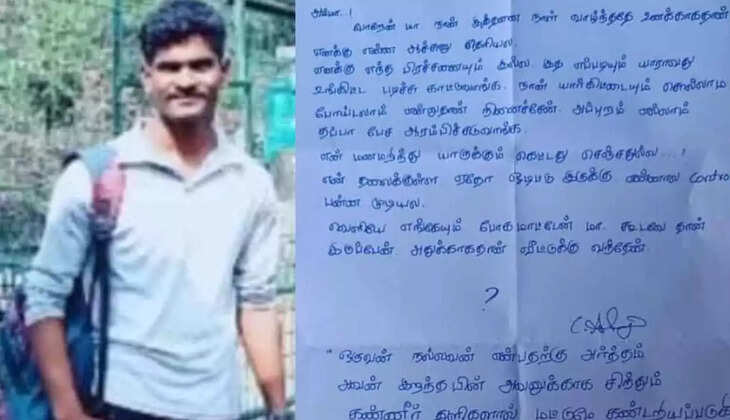 அம்மா..!
வாரேன் மா நான் இத்தனை நாள் வாழ்ந்ததே உனக்காகதான்
எனக்கு என்ன ஆச்சுனு தெரியல.
எனக்கு எந்த பிரச்சனையும் இல்ல. இத எப்படியும் யாராவது
உங்கிட்ட படிச்சு காட்டுவாங்க. நான் யார்கிட்டையும் சொல்லாம
போய்டலாம் னுதான் நினைச்சேன். அப்புறம் எல்லாம்
தப்பா பேச ஆரம்பிச்சுடுவாங்க.
என் மனமறிந்து யாருக்கும் கெட்டது செஞ்சதுல்ல...!
என் தலைக்குள்ள ஏதோ ஓடிட்டு இருக்கு என்னால Contro
பண்ண முடியல.
வெளியே எங்கேயும் போகமாட்டேன் மா. கூடவே தான்
இருப்பேன். அதுக்காகதான் வீட்டுக்கு வந்தேன்.
?
" ஒருவன் நல்லவன் என்பதற்கு அர்த்தம்
அவன் இறந்தபின் அவனுக்காக சிந்தும்
கண்ணீர் துளிகளால் மட்டுமே